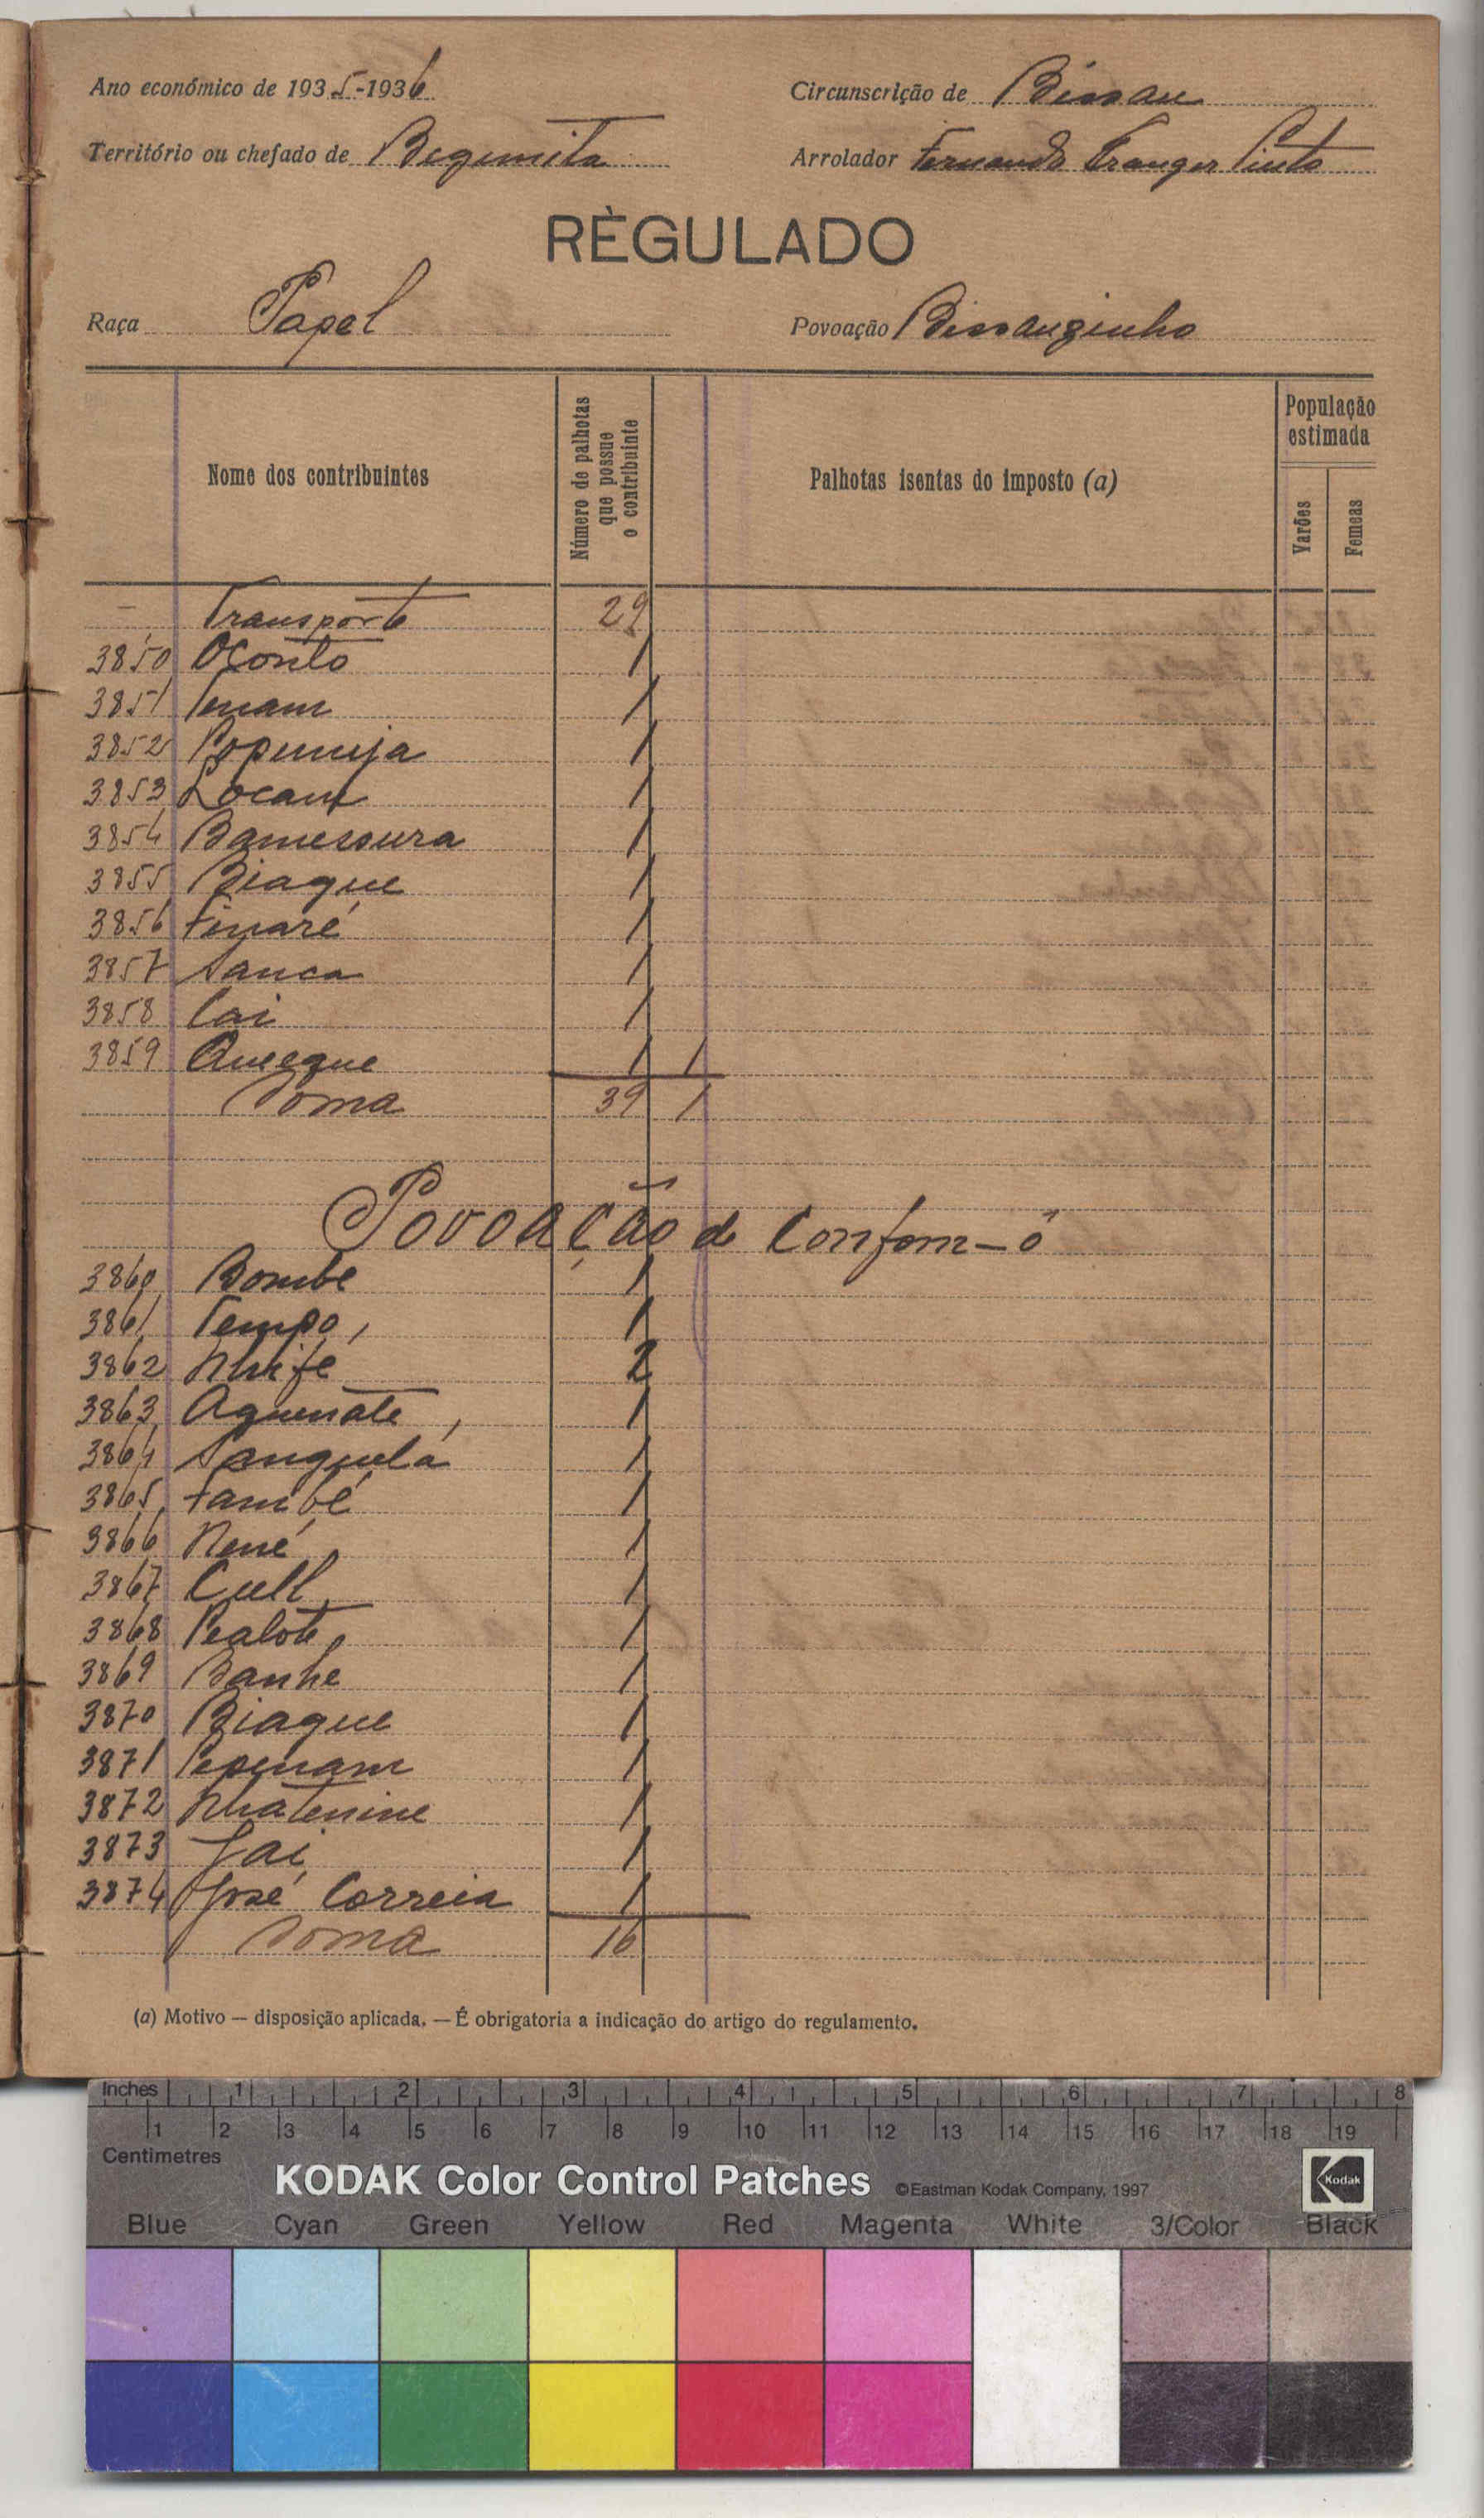 Ano económico de 1935-1936 Circunscrição de Bissau
Território ou chefado de Begimita Arrolador Fernando Pinto
RÈGULADO
Raça Papel Povoação Bissauzinho
Nome dos contribuintes
Número de palhotas que possue o contribuinte
Palhotas isentas do imposto (a)
População estimada
Varões
Femeas
— Transporte 29
3850 Oconto 1
3851 1
3852 1
3853 Locam 1
3854 Bamessura 1
3855 Biague 1
3856 Finaré 1
3857 Sanca 1
3858 Cai 1
3859 Quesque 1 1
Soma 39 1
Povoação de Confom-ô
3860 Bombe 1
3861 Tempo, 1
3862 Nhifé 2
3863 Aguenáte, 1
3864 Sanguelá 1
3865 Fambé 1
3866 Nené 1
3867 Cull 1
3868 1
3869 Banhe 1
3870 Biague 1
3871 1
3872 Nhatenine 1
3873 Jai 1
3874 José Correia 1
Soma 16
(a) Motivo — disposição aplicada. — É obrigatoria a indicação do artigo do regulamento.
Inches 1 2 3 4 5 6 7 8
1 2 3 4 5 6 7 8 9 10 11 12 13 14 15 16 17 18 19
Centimetres
KODAK Color Control Patches ©Eastman Kodak Company, 1997 Kodak
Blue Cyan Green Yellow Red Magenta White 3/Color Black